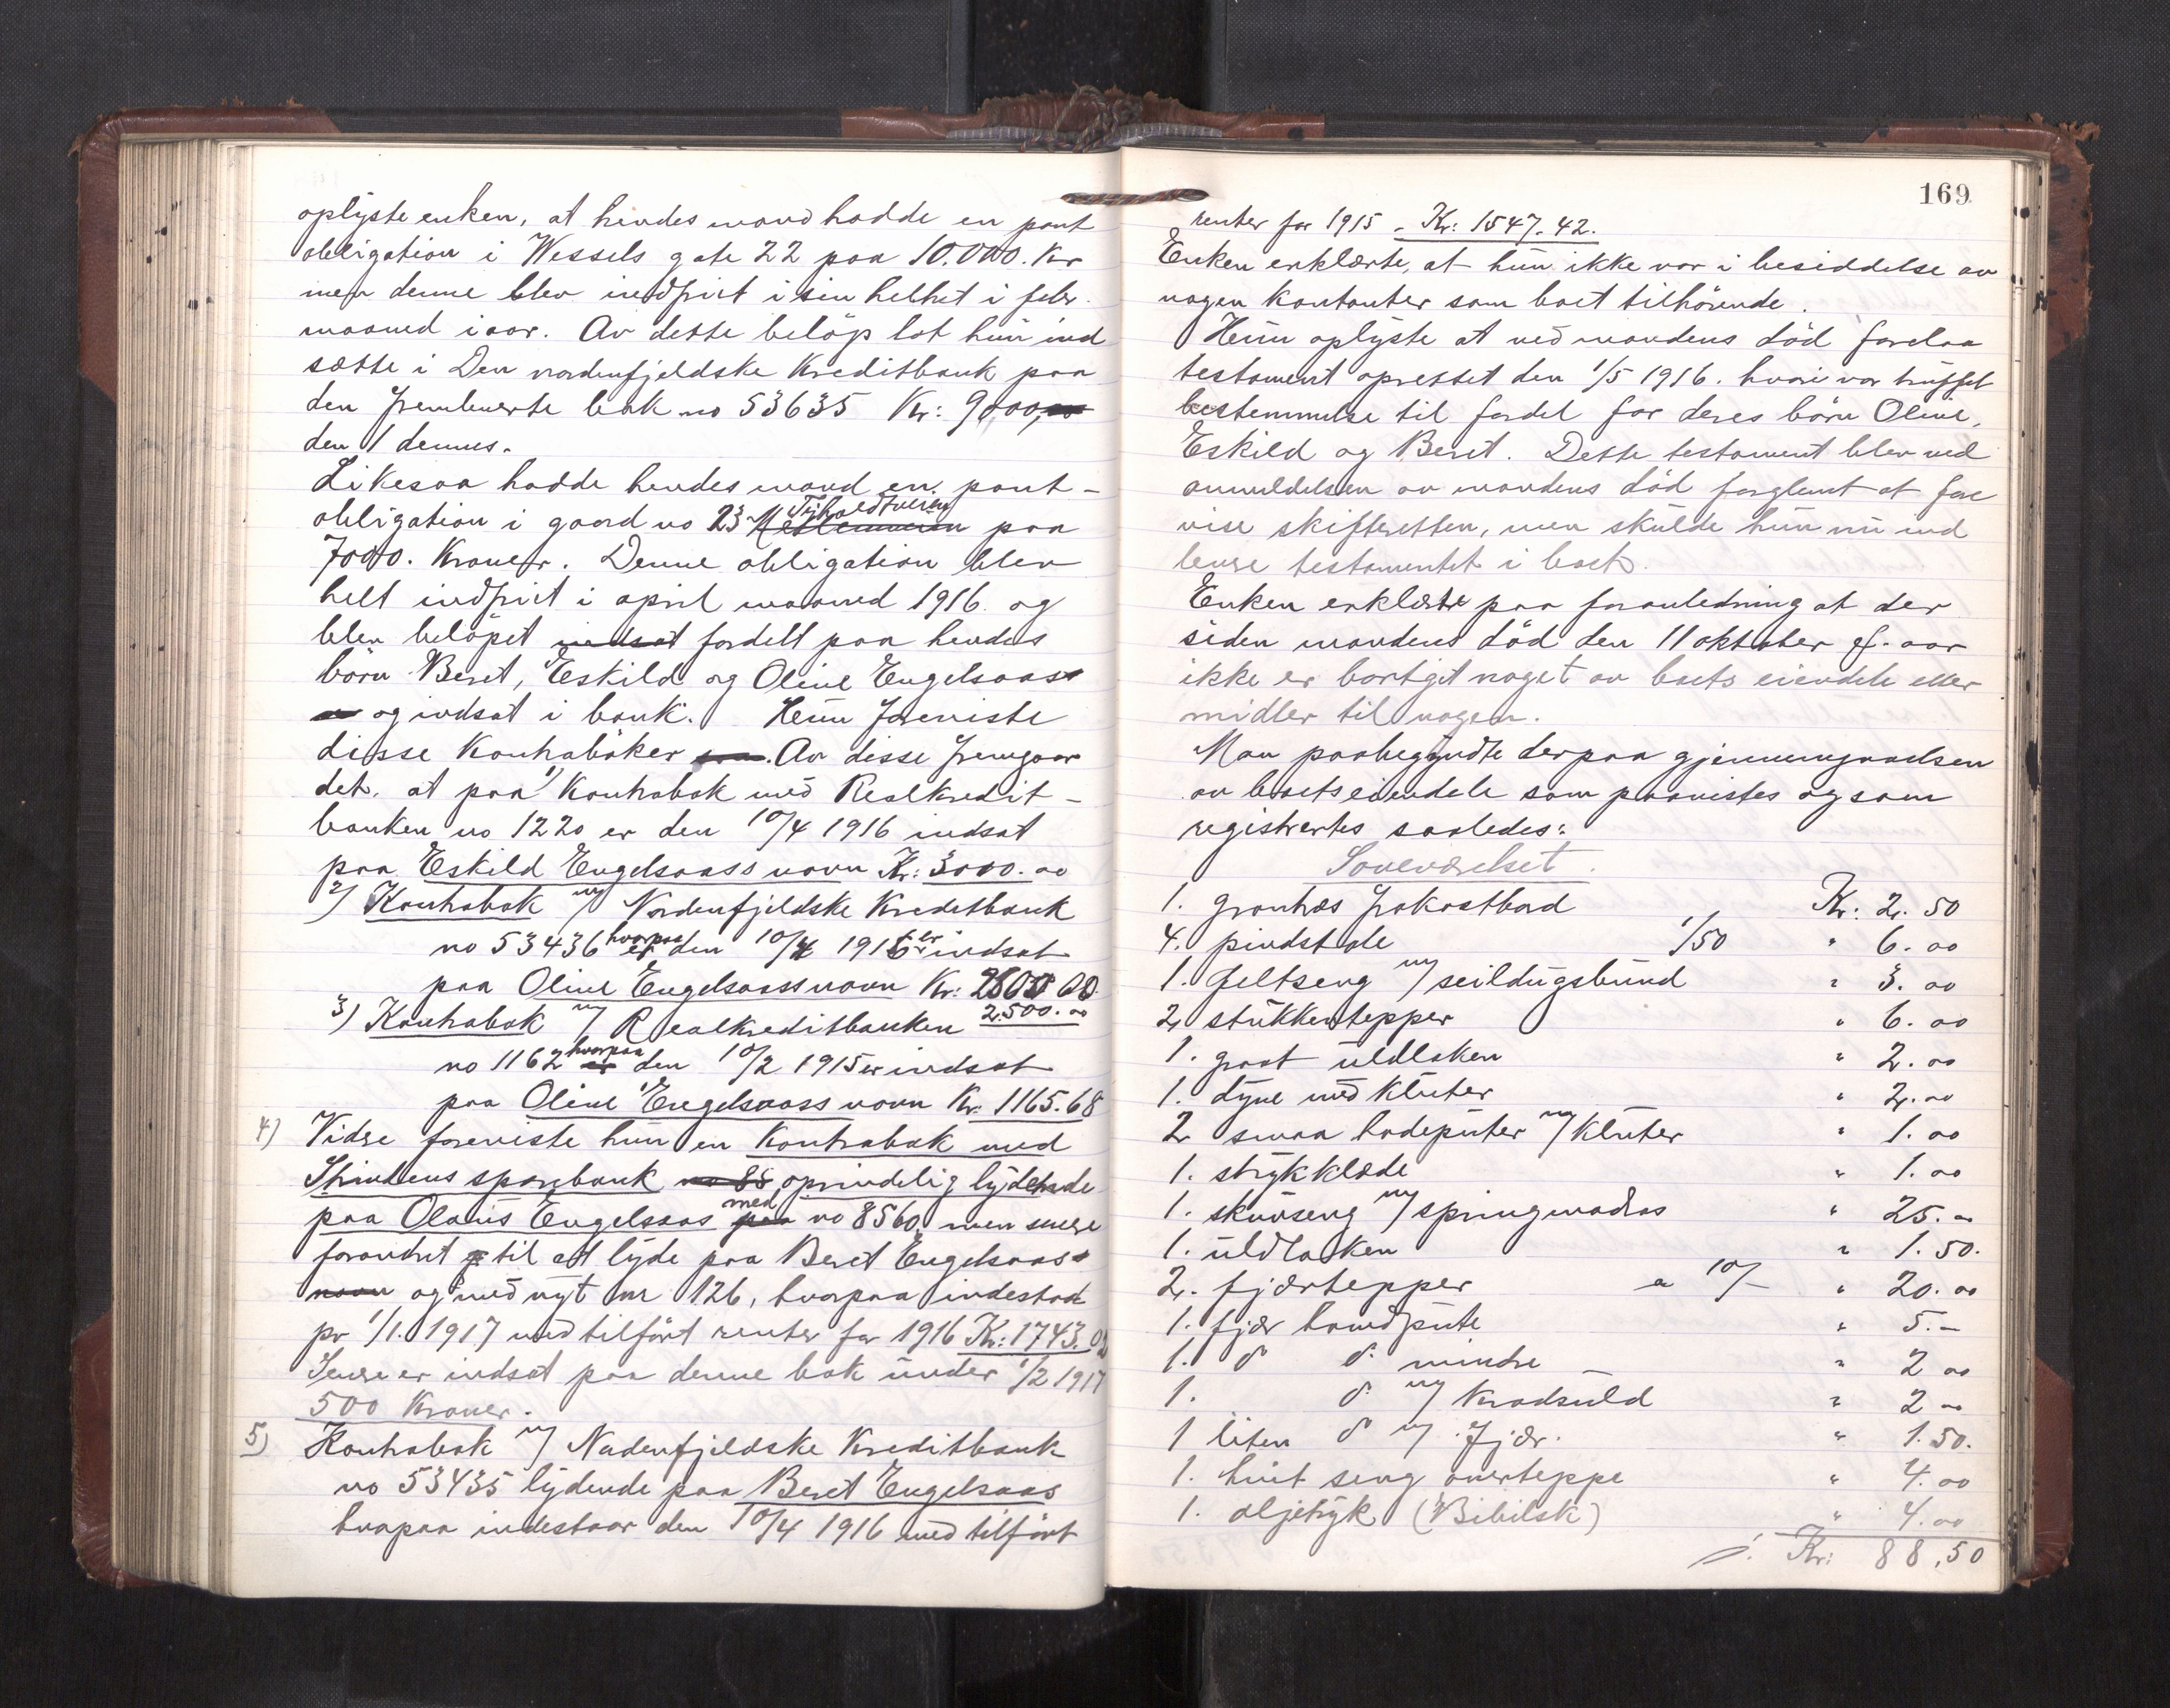 oplyste enken, at hendes mand hadde en pant
obligation i Wessels gate 22 paa 10.000. Kr
men denne blev indfriet i sin helhet i febr.
maaned iaar. Av dette beløp lot hun ind
sætte i Den nordenfjeldske Kreditbank paa
den frembuerte bok no 53635 Kr: 9000,00
den 1 dennes.
Likesaa hadde hendes mand en pant-
obligation i gaard no 23 Tyholdtveien paa
7000. Kroner. Denne obligation blev
helt indfriet i april maaned 1916. og
blev beløpet indsat fordelt paa hendes
børn Beret, Eskild og Oline Engelsaas
og indsat i bank. Hun foreviste
disse Kontrabøker som. Av disse fremgaar
det, at paa 1) Kontrabok med Realkredit-
banken no 1220 er den 10/4 1916 indsat
paa Eskild Engelsaass navn Kr: 3000.00
2) Kontrabok m/ Nordenfjeldske Kreditbank
no 53436 hvorpaa er den 10/4 1916 er indsat
paa Oline Engelsaass navn Kr:
2.500.00
3) Kontrabok m/ Realkreditbanken
no 1162 hvorpaa er den 10/2 1915 er indsat
paa Oline Engelsaass navn Kr: 1165.68
4) Vidre foreviste hun en Kontrabok med
Strindens sparebank no 85, oprindelig lydende
paa Olaus Engelsaas med paa no 8560, men senere
forandret til at lyde paa Beret Engelsaas
navn og med nyt nr 126, hvorpaa indestod
pr 1/1. 1917 med tilført renter for 1916 Kr: 1743.02
Senere er indsat paa denne bok under 1/2 1917
500 Kroner.
5) Kontrabok m/ Nordenfjeldske Kreditbank
no 53435 lydende paa Beret Engelsaas
hvorpaa indestaar den 10/4 1916 med tilført
169
renter for 1915 - Kr: 1547.42.
Enken erklærte, at hun ikke var i besiddelse av
nogen Kontanter som boet tilhørende.
Hun oplyste at ved mandens død forelaa
testament oprettet den 1/5 1916. hvori var truffet
bestemmelse til fordel for deres børn Oline,
Eskild og Beret. Dette testament blev ved
anmeldelsen av mandens død forglemt at fore
vise skifteretten, men skulde hun nu ind
levere testamentet i boet.
Enken erklærte paa foranledning at der
siden mandens død den 11 oktober f. aar
ikke er bortgit noget av boets eiendele eller
midler til nogen.
Man paabegyndte derpaa gjennemgaaelsen
av boets eiendele som paavistes og som
registrertes saaledes:
Soveværelset.
1. granhæs frokostbord Kr: 2.50
4. pindstole 1/50 " 6.00
1. feltseng m/ seildugsbund " 3.00
2 stukketepper " 6.00
1. graat uldlaken " 2.00
1. dyne med Kluter " 2.00
2 smaa hodeputer m/ Kluter " 1.00
1. strykklæde " 1.00
1. skuvseng m/ springmadras " 25.00
1. uldlaken " 1.50.
2. fjærtepper a 10/- " 20.00
1. fjær hovedpute " 5.-
1. do do mindre - " 2 00
1. do m/ Kradsuld " 2 00
1 liten do m/ fjær. " 1.50.
1. hvit seng overteppe " 4.00
1. oljetryk (Bibilsk) " 4.00
Kr: 88,50